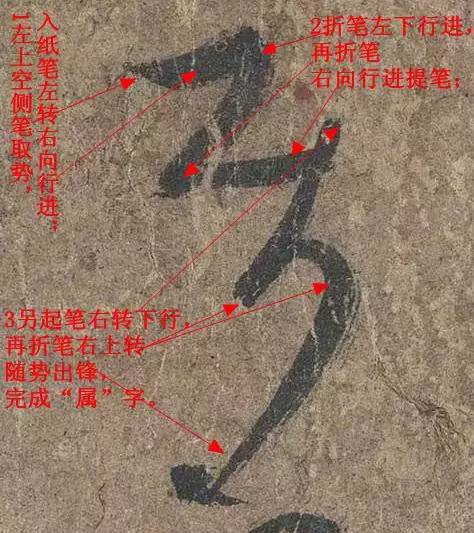 1左上空侧笔取势，
入纸笔左转右向行进；
2折笔左下行进，
再折笔
右向行进提笔；
3另起笔右转下行，
再折笔右上转
随势出锋，
完成“属”字。